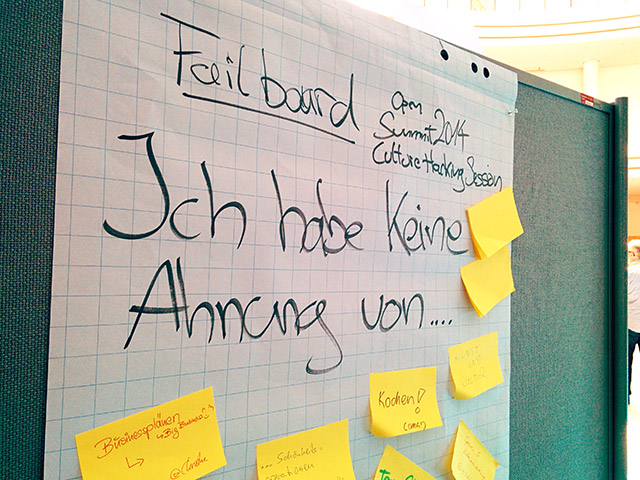 Failboard
Open
Summit 2014
Culture Hacking Session
Ich habe keine
Ahnung von....
Kochen!
Businessplänen
Big Business